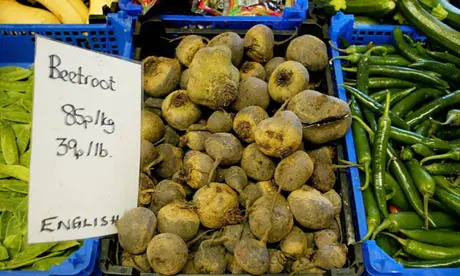 Beetroot
85p/kg
39p/lb.
ENGLISH